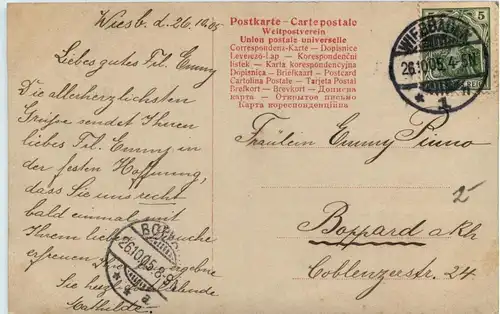 Wiesb. d. 26.10.05
Liebes gutes Frl. Emmy
Die allerherzlichsten
Grüße sendet Ihnen
liebes Frl. Emmy in
der festen Hoffnung,
dass Sie uns recht
bald einmal mit
Ihrem lieben
erfreuen
Sie
Mathilde.
Postkarte - Carte postale
Weltpostverein
Union postale universelle
Correspondenz-Karte – Dopisnice
Levelező-Lap — Korespondenční
lístek – Karta korespondencyjna
Dopisnica – Briefkaart – Postcard
Cartolina Postale – Tarjeta postal
Brefkort — Brevkort — Дописна
карта — Открытое письмо
Карта кореспонційна
WIESBADEN
26.10.05. 4-5N
* 1
5
Fräulein Emmy
Boppard a/Rh
Coblenzerstr. 24.
2
26.10.05. 8-9N
* * a